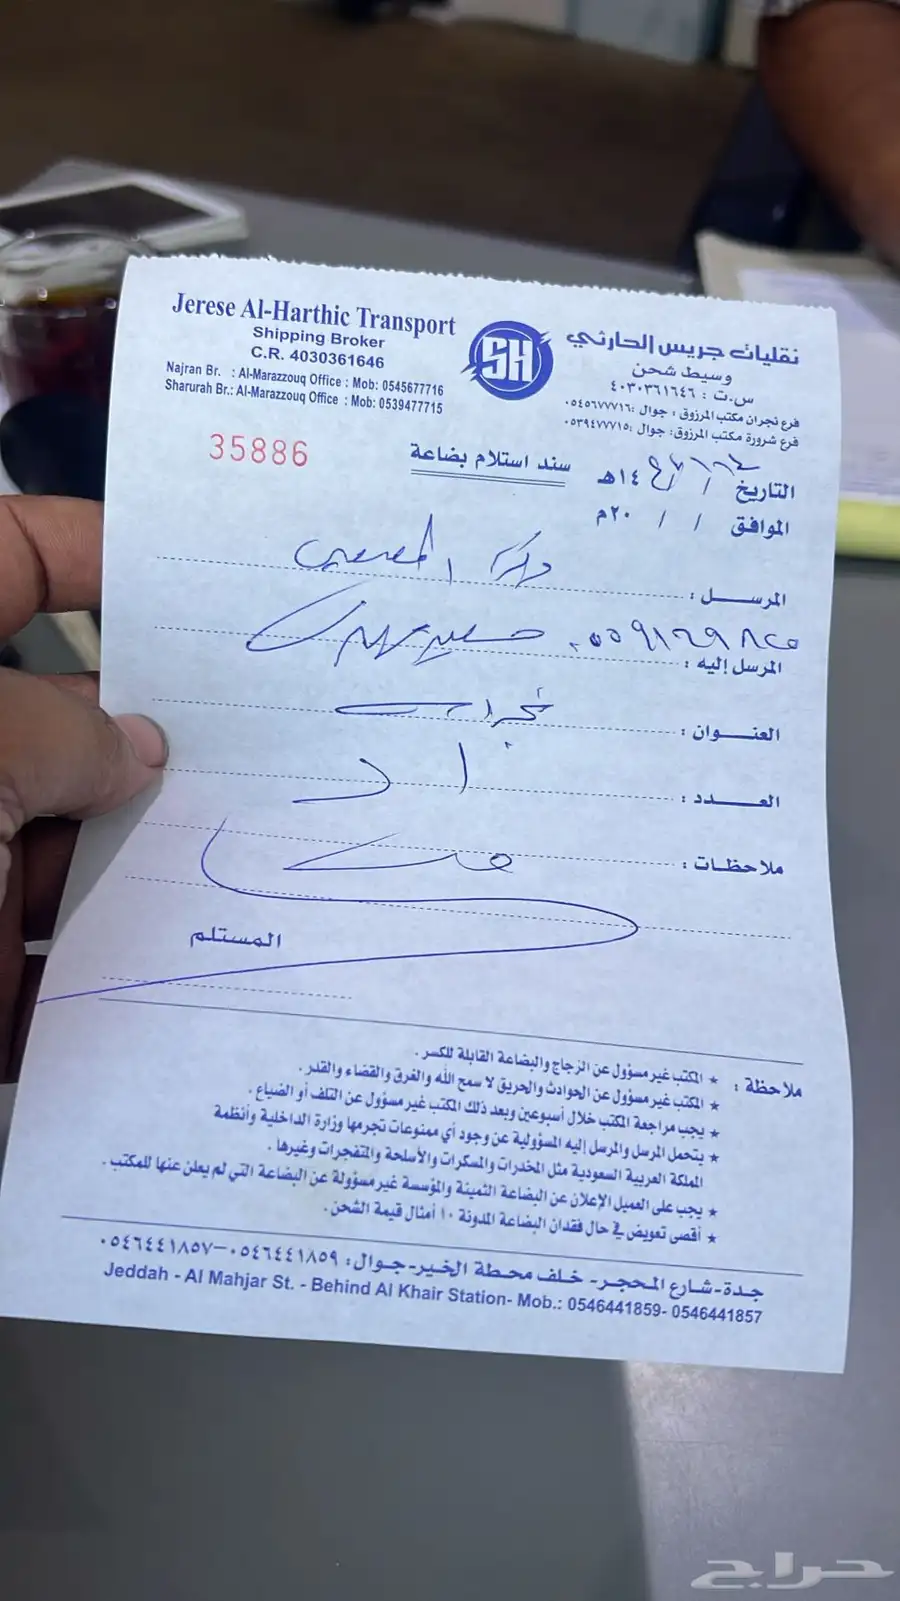 Jerese Al-Harthic Transport
Shipping Broker
C.R. 4030361646
Najran Br. : Al-Marazzouq Office : Mob: 0545677716
Sharurah Br.: Al-Marazzouq Office : Mob: 0539477715
SH
نقليات جريس الحارثي
وسيط شحن
س.ت : ٤٠٣٠٣٦١٦٤٦
فرع نجران مكتب المرزوق : جوال :٠٥٤٥٦٧٧٧١٦
فرع شرورة مكتب المرزوق: جوال :٠٥٣٩٤٧٧٧١٥
35886
سند استلام بضاعة
التاريخ / / ١٤هـ
الموافق / / ٢٠م
المرسل :
المرسل إليه :
العنوان : نجران
العدد :
ملاحظات :
المستلم
ملاحظة : * المكتب غير مسؤول عن الزجاج والبضاعة القابلة للكسر .
* المكتب غير مسؤول عن الحوادث والحريق لا سمح الله والغرق والقضاء والقدر .
* يجب مراجعة المكتب خلال أسبوعين وبعد ذلك المكتب غير مسؤول عن التلف أو الضياع .
* يتحمل المرسل والمرسل إليه المسؤولية عن وجود أي ممنوعات تجرمها وزارة الداخلية وأنظمة
المملكة العربية السعودية مثل المخدرات والمسكرات والأسلحة والمتفجرات وغيرها .
* يجب على العميل الإعلان عن البضاعة الثمينة والمؤسسة غير مسؤولة عن البضاعة التي لم يعلن عنها للمكتب .
* أقصى تعويض في حال فقدان البضاعة المدونة ١٠ أمثال قيمة الشحن .
جدة-شارع المحجر- خلف محطة الخير-جوال: ٠٥٤٦٤٤١٨٥٩-٠٥٤٦٤٤١٨٥٧
Jeddah - Al Mahjar St. - Behind Al Khair Station- Mob.: 0546441859- 0546441857
حراج